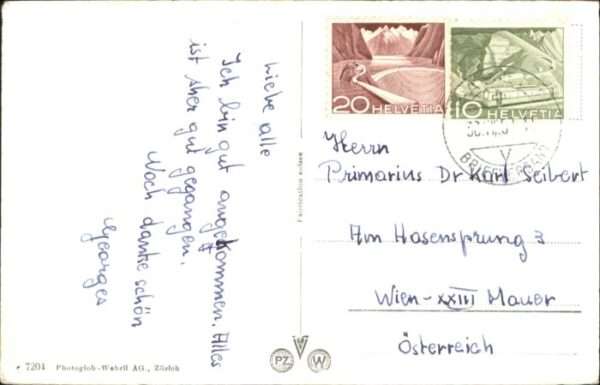 Liebe alle
Ich bin gut angekommen. Alles
ist sher gut gegangen.
Noch danke schön
Georges
20 HELVETIA
10 HELVETIA
Herrn
Primarius Dr Karl Seibert
Am Hasensprung 3
Wien-XXIII Mauer
Österreich
7204 Photoglob-Wehrli AG., Zürich
PZ W